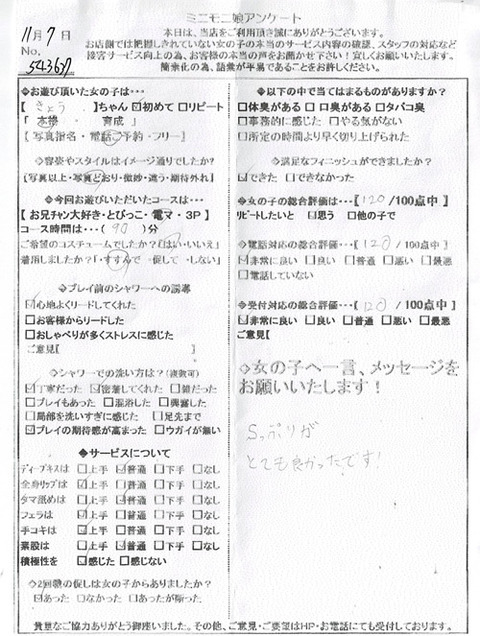 ミニモニ娘アンケート
11月7日
No.
本日は、当店をご利用頂き誠にありがとうございます。
お店側では把握しきれていない女の子の本当のサービス内容の確認、スタッフの対応など
接客サービス向上の為、お客様の本当の声をお聞かせ下さい！宜しくお願いいたします。
簡素化の為、語彙が平易であることをお許しください。
◆お遊び頂いた女の子は…
【きょう】ちゃん ☑初めて ☐リピート
「本指・育成」
【写真指名・電話ご予約・フリー】
◇容姿やスタイルはイメージ通りでしたか?
【写真以上・写真どおり・微妙・違う・期待外れ】
◆今回お遊びいただいたコースは…
【お兄チャン大好き・とびっこ・電マ・3P】
コース時間は…(90)分
ご希望のコスチュームでしたか?「はい・いいえ」
着用しましたか?
◇プレイ前のシャワーへの誘導
☑心地よくリードしてくれた
☐お客様からリードした
☐おしゃべりが多くストレスに感じた
ご意見【 】
◇シャワーでの洗い方は?(複数可)
☑丁寧だった ☑密着してくれた ☐雑だった
☐プレイもあった ☐混浴した ☐興奮した
☐局部を洗いすぎに感じた ☐足先まで
☑プレイの期待感が高まった ☐ウガイが無い
◆サービスについて
ディープキスは ☐上手 ☑普通 ☐下手 ☐なし
全身リップは ☑上手 ☐普通 ☐下手 ☐なし
タマ舐めは ☑上手 ☐普通 ☐下手 ☐なし
フェラは ☑上手 ☐普通 ☐下手 ☐なし
手コキは ☐上手 ☑普通 ☐下手 ☐なし
素股は ☐上手 ☑普通 ☐下手 ☐なし
積極性を ☑感じた ☐感じない
◇2回戦の促しは女の子からありましたか?
☑あった ☐なかった ☐あったが断った
◆以下の中で当てはまるものがありますか?
☐体臭がある ☐口臭がある ☐タバコ臭
☐事務的に感じた ☐やる気がない
☐所定の時間より早く切り上げられた
◇満足なフィニッシュができましたか?
☑できた ☐できなかった
◆女の子の総合評価…【120/100点中】
リピートしたいと ☑思う ☐他の子で
◇電話対応の総合評価…【120/100点中】
☑非常に良い ☐良い ☐普通 ☐悪い ☐最悪
☐電話していない
◆受付対応の総合評価…【120/100点中】
☑非常に良い ☐良い ☐普通 ☐悪い ☐最悪
ご意見【
◇女の子へ一言、メッセージを
お願いいたします！
Sっぷりが
とても良かったです!
貴重なご協力ありがとう御座いました。その他、ご意見・ご要望はHP・お電話にても受付しております。